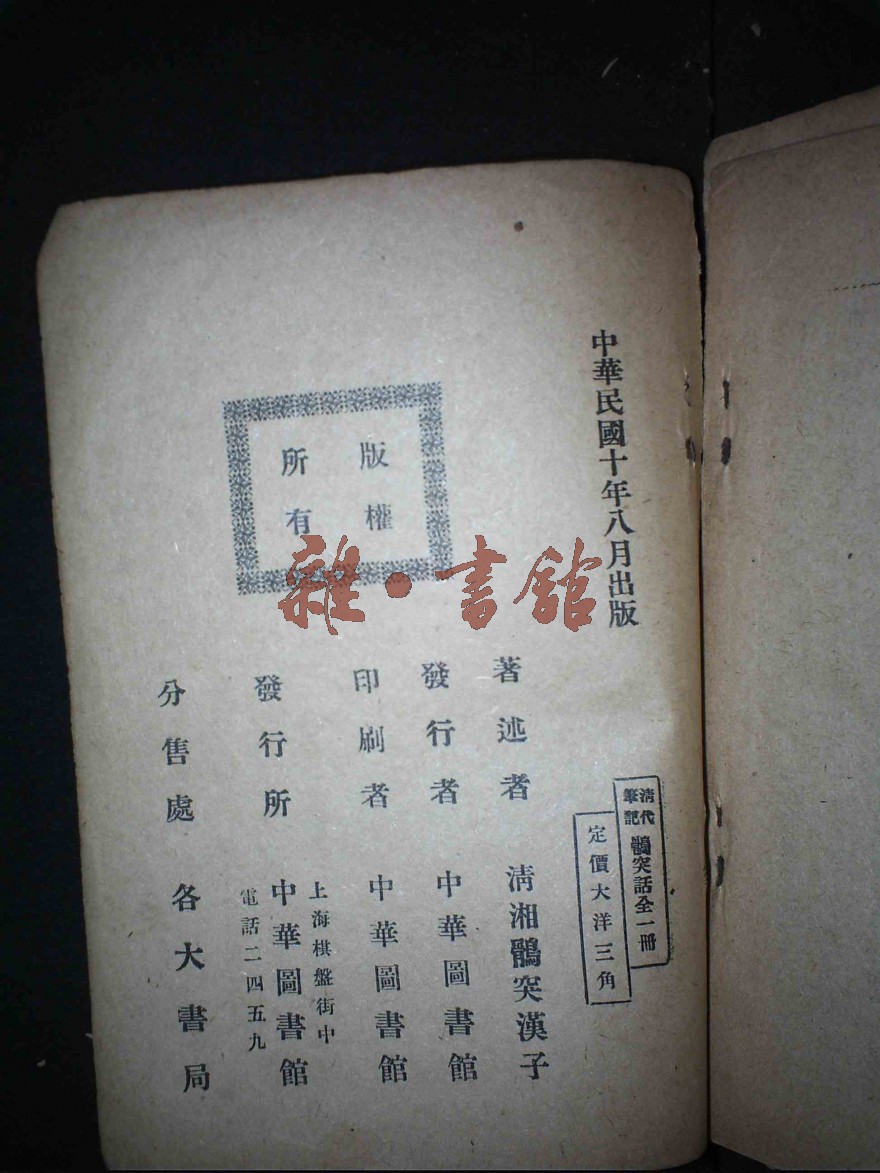 中華民國十年八月出版
清代
筆記
鶻突話全一冊
定價大洋三角
版權
所有
著述者 清湘鶻突漢子
發行者 中華圖書館
印刷者 中華圖書館
發行所 上海棋盤街中
中華圖書館
電話二四五九
分售處 各大書局
雜·書館